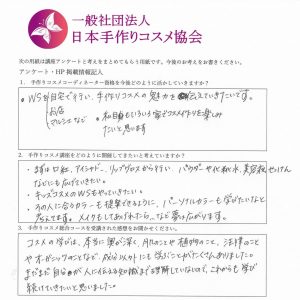 一般社団法人
日本手作りコスメ協会
次の用紙は講座アンケートと考えをまとめてもらう用紙です。今後のお考えをお書きください。
アンケート・HP掲載情報記入
1. 手作りコスメコーディネーター資格を今後どのように活かしていきますか?
・WSを自宅で行い、手作りコスメの魅力を伝えていきたいです。
お店
マルシェなど
・私自身もいろいろ家でコスメ作りを楽しみ
たいと思います
2. 手作りコスメ講座をどのように開催してきたいと考えていますか?
・まずは口紅、アイシャドー、リップグロスから行い、パウダーや化粧水、美容液、せっけん
などにも広げていきたい。
・キッズコスメのWSもやっていきたい。
・その人に合うカラーも提案できるように、パーソナルカラーも学びたいなと
考えてます。メイクもしてあげれたら。など夢も広がります。
3. 手作りコスメ総合コースを受講された感想をお聞かせください。
コスメの学びは、本当に奥が深く、肌のことや植物のこと、法律のこと
やオーガニックのことなど、成分以外にも学ぶことがたくさんありました。
まだまだ自分が人に伝える程の知識まで理解していないので、これからも学び
続けていきたいと思いました。